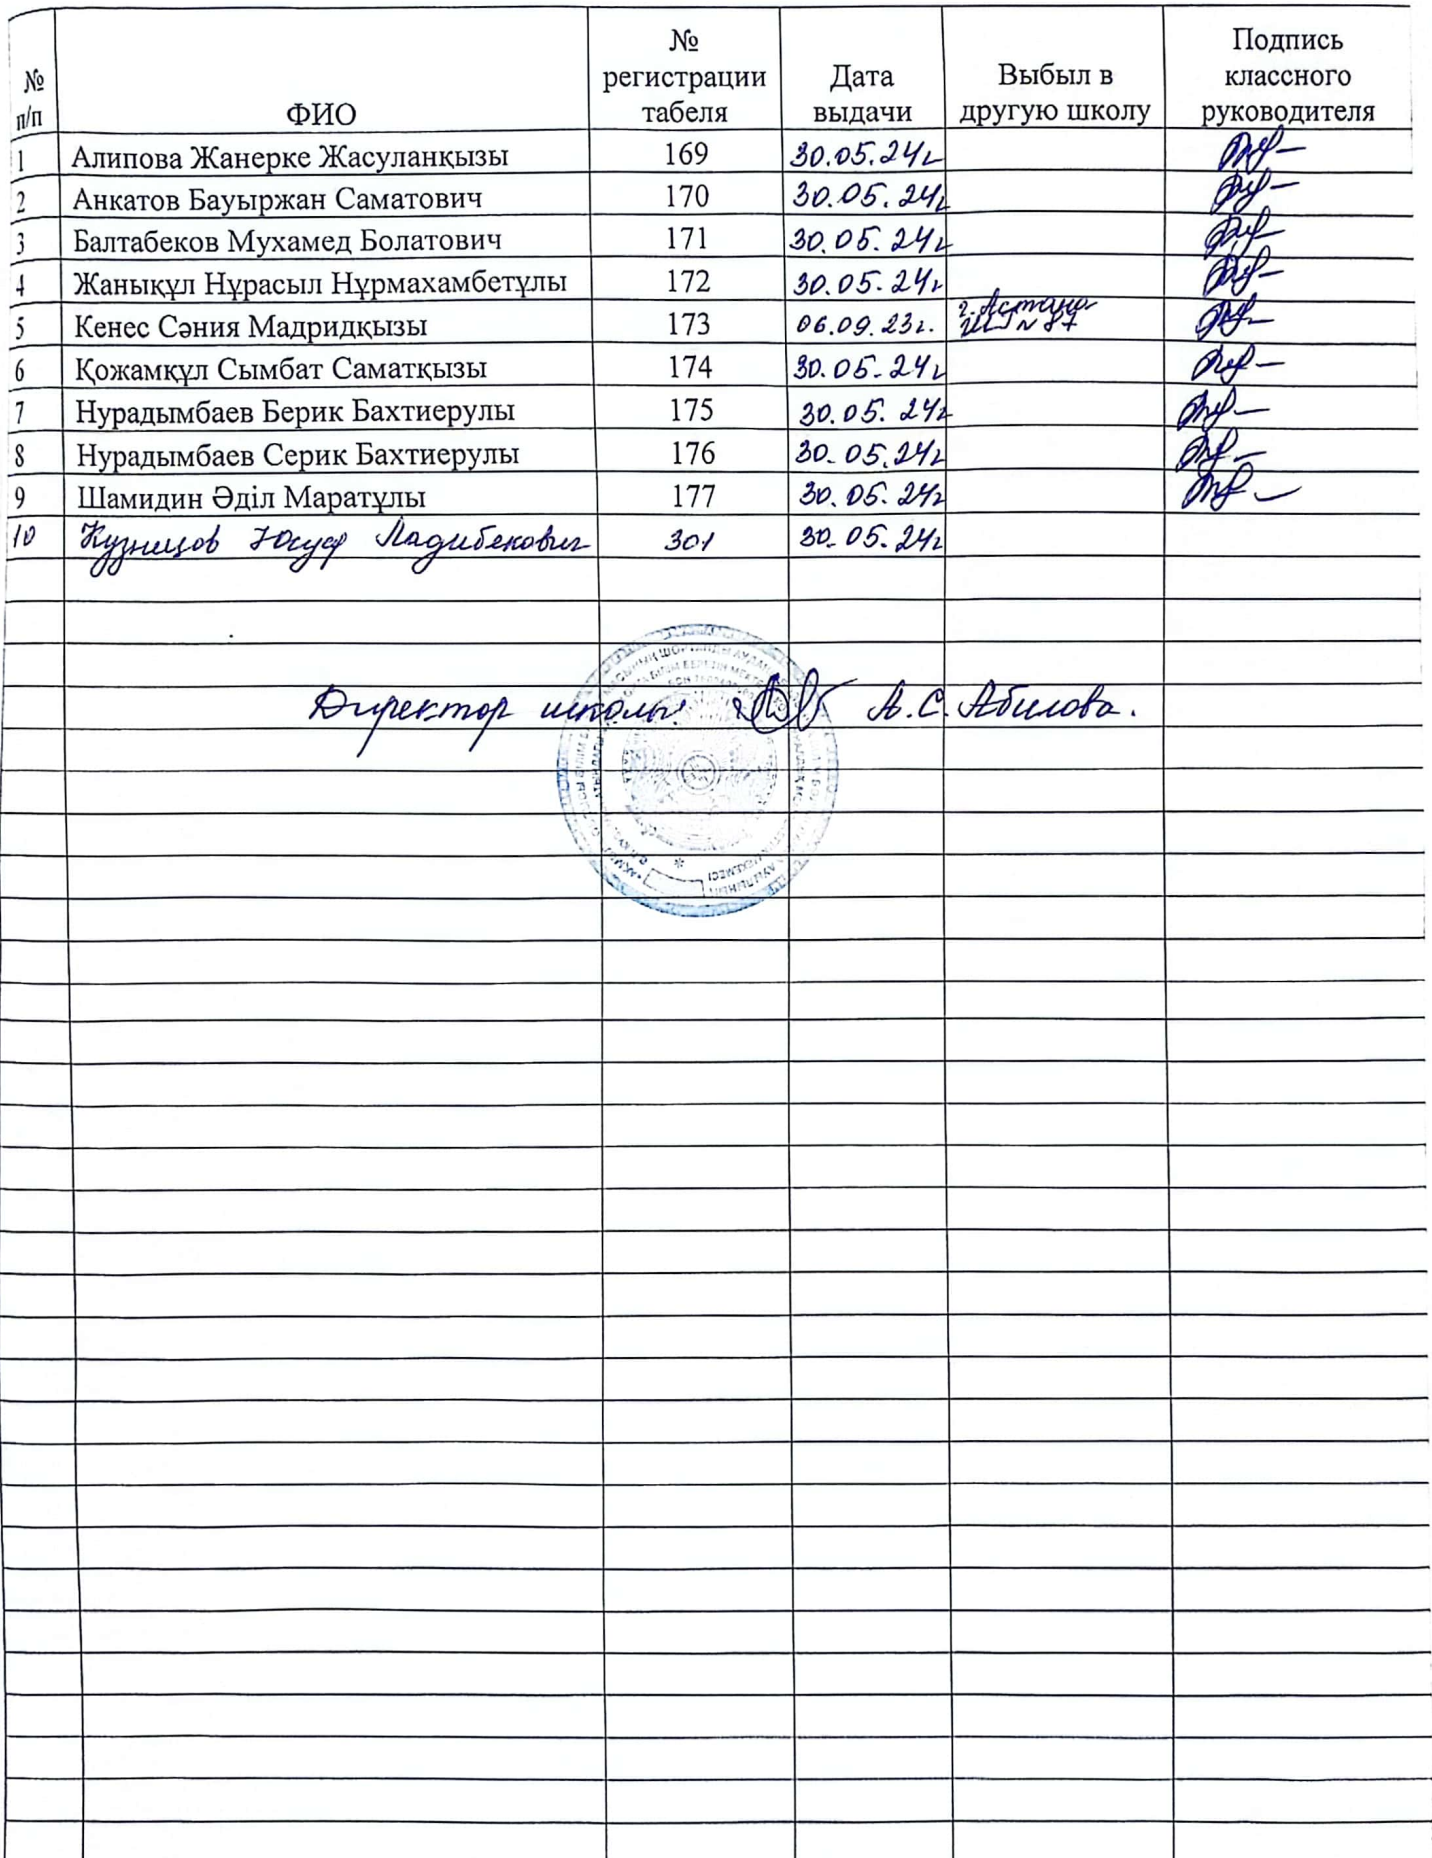 № п/п ФИО № регистрации табеля Дата выдачи Выбыл в другую школу Подпись классного руководителя
1 Алипова Жанерке Жасуланқызы 169 30.05.24г
2 Анкатов Бауыржан Саматович 170 30.05.24г
3 Балтабеков Мухамед Болатович 171 30.05.24г
4 Жанықұл Нұрасыл Нұрмахамбетұлы 172 30.05.24г
5 Кенес Сәния Мадридқызы 173 06.09.23г. г. Астана № 87
6 Қожамқұл Сымбат Саматқызы 174 30.05.24г
7 Нурадымбаев Берик Бахтиерулы 175 30.05.24г
8 Нурадымбаев Серик Бахтиерулы 176 30.05.24г
9 Шамидин Әділ Маратұлы 177 30.05.24г
10 Кузнецов Юсуф 301 30.05.24г
Директор школы: А.С. Абилова.